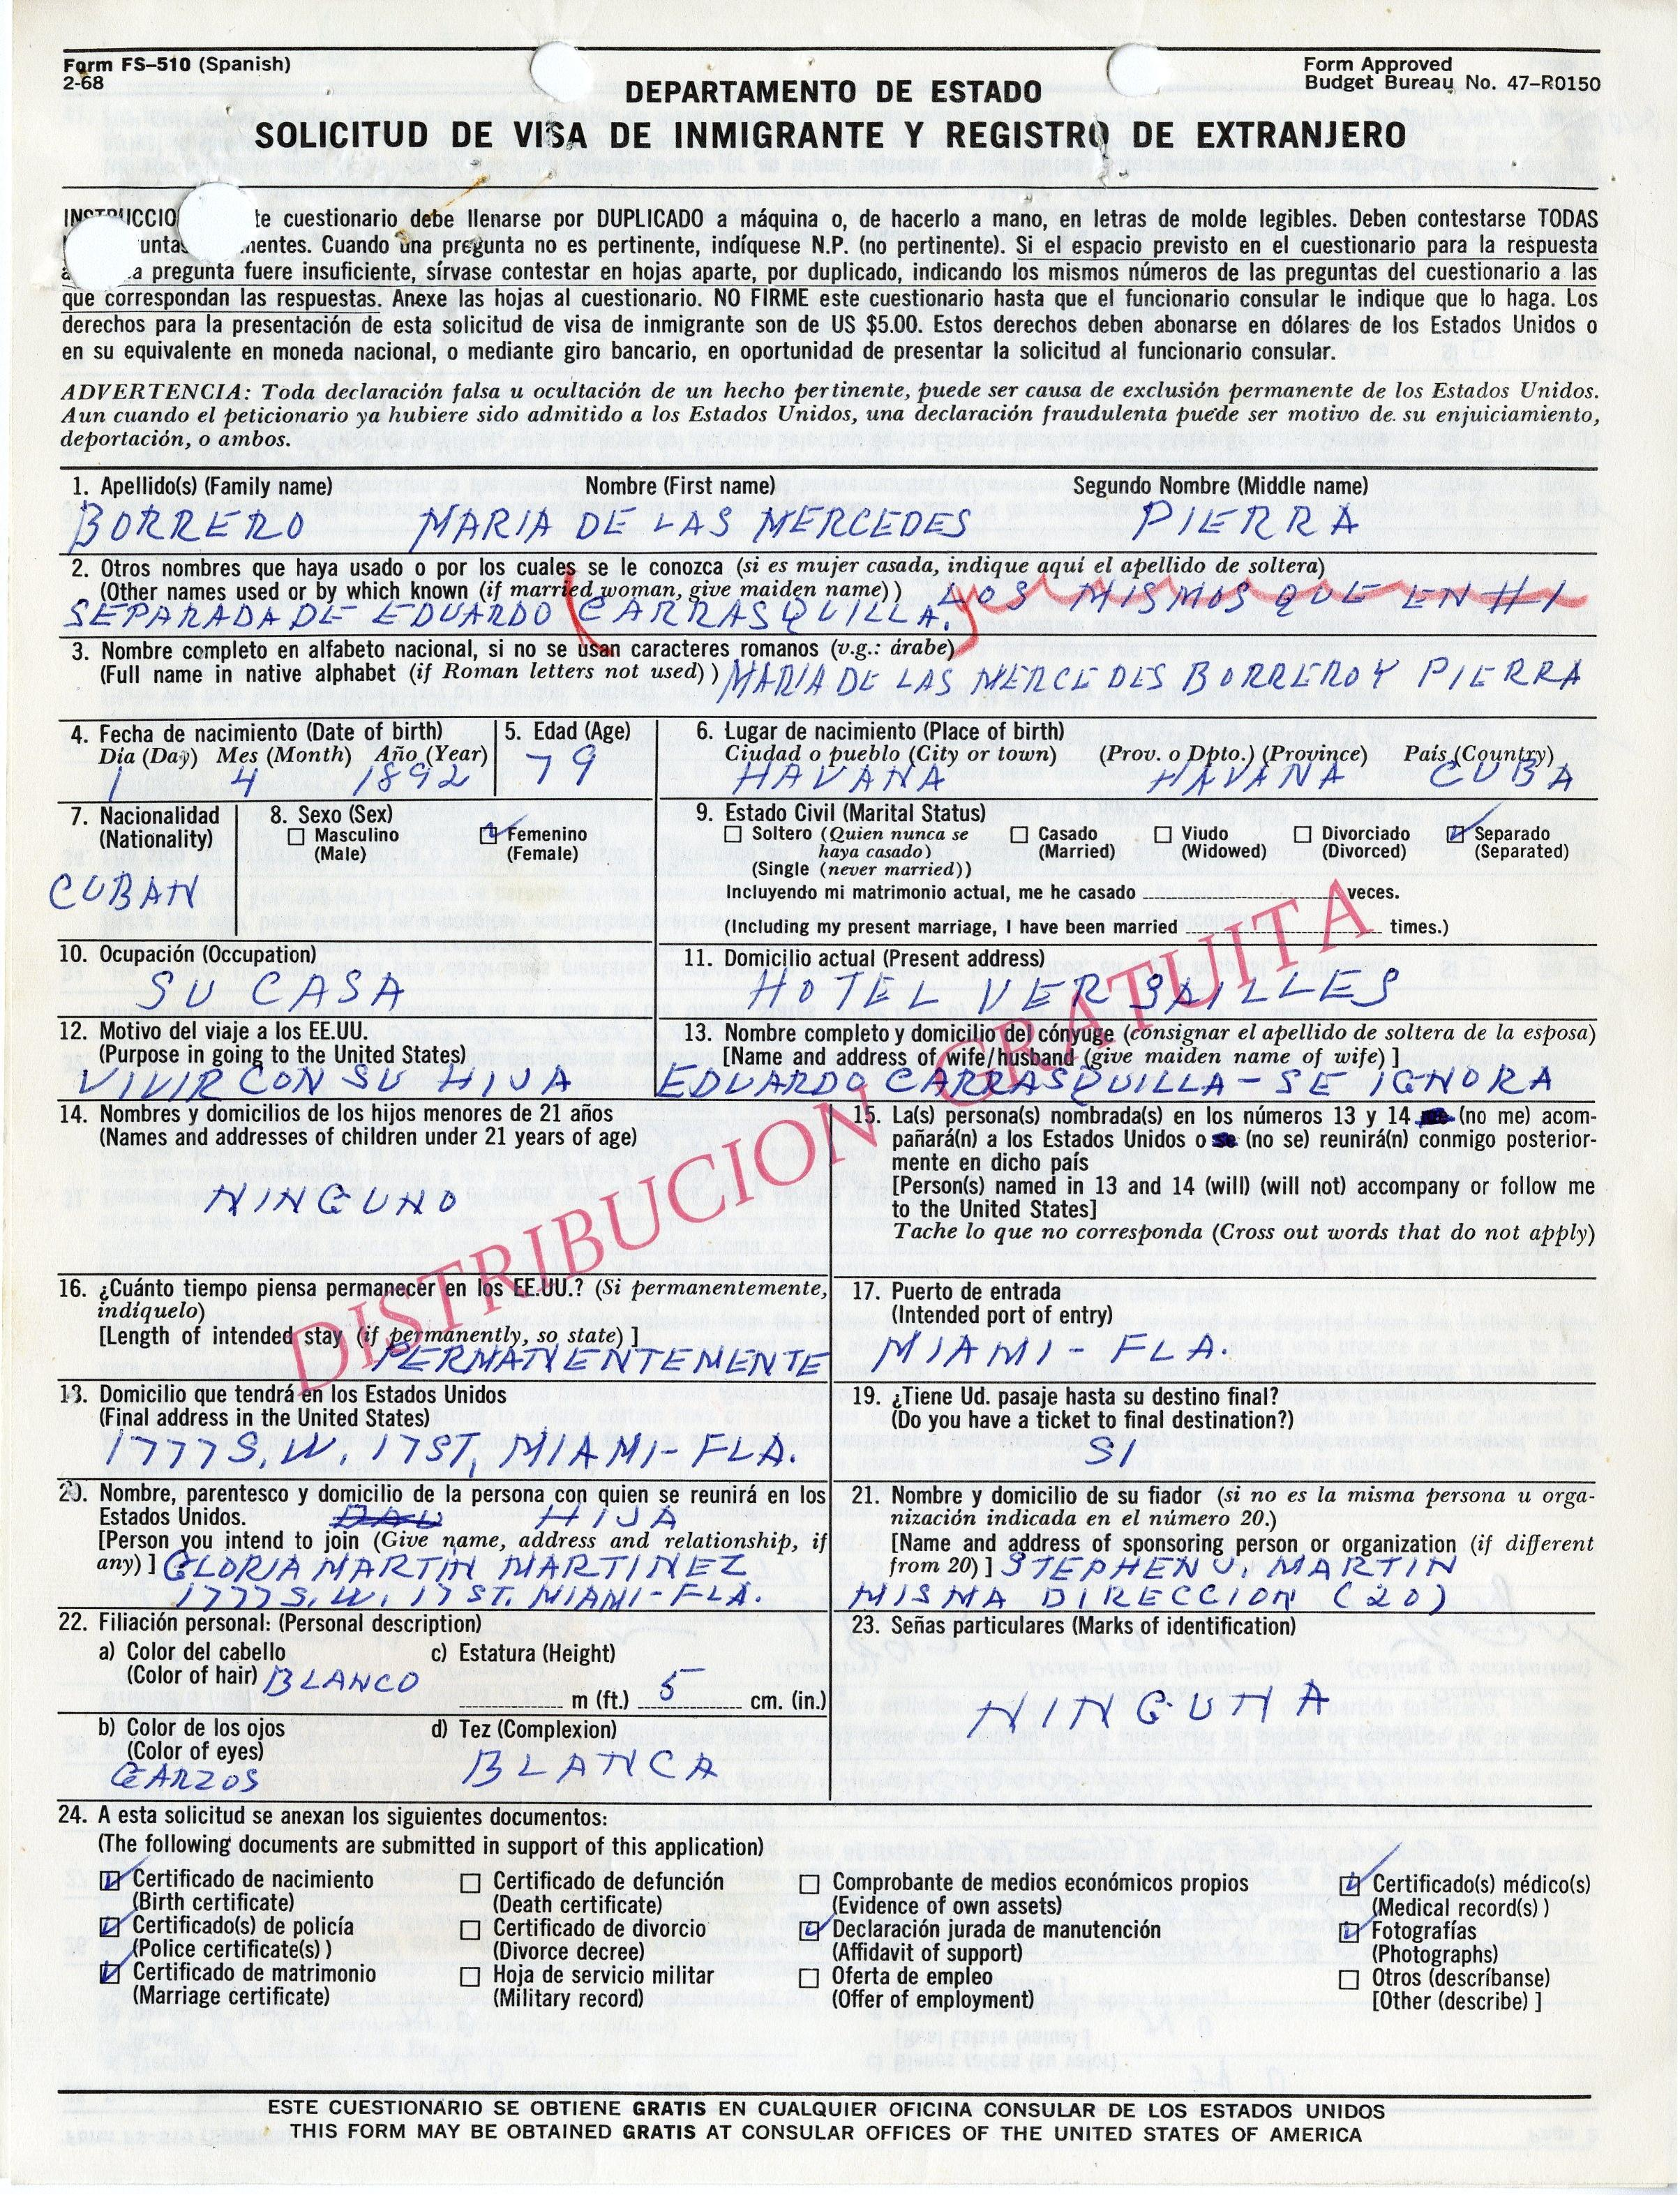 Form FS–510 (Spanish)
2-68
Form Approved
Budget Bureau No. 47–R0150
DEPARTAMENTO DE ESTADO
SOLICITUD DE VISA DE INMIGRANTE Y REGISTRO DE EXTRANJERO
INSTRUCCIO te cuestionario debe llenarse por DUPLICADO a máquina o, de hacerlo a mano, en letras de molde legibles. Deben contestarse TODAS
untas nentes. Cuando una pregunta no es pertinente, indíquese N.P. (no pertinente). Si el espacio previsto en el cuestionario para la respuesta
a a pregunta fuere insuficiente, sírvase contestar en hojas aparte, por duplicado, indicando los mismos números de las preguntas del cuestionario a las
que correspondan las respuestas. Anexe las hojas al cuestionario. NO FIRME este cuestionario hasta que el funcionario consular le indique que lo haga. Los
derechos para la presentación de esta solicitud de visa de inmigrante son de US $5.00. Estos derechos deben abonarse en dólares de los Estados Unidos o
en su equivalente en moneda nacional, o mediante giro bancario, en oportunidad de presentar la solicitud al funcionario consular.
ADVERTENCIA: Toda declaración falsa u ocultación de un hecho pertinente, puede ser causa de exclusión permanente de los Estados Unidos.
Aun cuando el peticionario ya hubiere sido admitido a los Estados Unidos, una declaración fraudulenta puede ser motivo de su enjuiciamiento,
deportación, o ambos.
1. Apellido(s) (Family name) Nombre (First name) Segundo Nombre (Middle name)
BORRERO MARIA DE LAS MERCEDES PIERRA
2. Otros nombres que haya usado o por los cuales se le conozca (si es mujer casada, indique aquí el apellido de soltera)
(Other names used or by which known (if married woman, give maiden name)) LOS MISMOS QUE EN #1
SEPARADA DE EDUARDO CARRASQUILLA. y
3. Nombre completo en alfabeto nacional, si no se usan caracteres romanos (v.g.: árabe)
(Full name in native alphabet (if Roman letters not used)) MARIA DE LAS MERCEDES BORRERO Y PIERRA
4. Fecha de nacimiento (Date of birth)
Día (Day) Mes (Month) Año (Year)
1 4 1892
5. Edad (Age)
79
6. Lugar de nacimiento (Place of birth)
Ciudad o pueblo (City or town) (Prov. o Dpto.) (Province) País (Country)
HAVANA HAVANA CUBA
7. Nacionalidad
(Nationality)
CUBAN
8. Sexo (Sex)
Masculino
(Male)
Femenino
(Female)
9. Estado Civil (Marital Status)
Soltero (Quien nunca se
haya casado)
(Single (never married))
Casado
(Married)
Viudo
(Widowed)
Divorciado
(Divorced)
Separado
(Separated)
Incluyendo mi matrimonio actual, me he casado veces.
(Including my present marriage, I have been married times.)
10. Ocupación (Occupation)
SU CASA
11. Domicilio actual (Present address)
HOTEL VERSAILLES
12. Motivo del viaje a los EE.UU.
(Purpose in going to the United States)
VIVIR CON SU HIJA
13. Nombre completo y domicilio del cónyuge (consignar el apellido de soltera de la esposa)
[Name and address of wife/husband (give maiden name of wife)]
EDUARDO CARRASQUILLA – SE IGNORA
14. Nombres y domicilios de los hijos menores de 21 años
(Names and addresses of children under 21 years of age)
NINGUNO
15. La(s) persona(s) nombrada(s) en los números 13 y 14 (no me) acom-
pañará(n) a los Estados Unidos o se (no se) reunirá(n) conmigo posterior-
mente en dicho país
[Person(s) named in 13 and 14 (will) (will not) accompany or follow me
to the United States]
Tache lo que no corresponda (Cross out words that do not apply)
DISTRIBUCION GRATUITA
16. ¿Cuánto tiempo piensa permanecer en los EE.UU.? (Si permanentemente,
indíquelo)
[Length of intended stay (if permanently, so state)]
PERMANENTEMENTE
17. Puerto de entrada
(Intended port of entry)
MIAMI - FLA.
18. Domicilio que tendrá en los Estados Unidos
(Final address in the United States)
1777 S.W. 17 ST, MIAMI - FLA.
19. ¿Tiene Ud. pasaje hasta su destino final?
(Do you have a ticket to final destination?)
SI
20. Nombre, parentesco y domicilio de la persona con quien se reunirá en los
Estados Unidos. DAU HIJA
[Person you intend to join (Give name, address and relationship, if
any)] GLORIA MARTIN MARTINEZ
1777 S.W. 17 ST. MIAMI - FLA.
21. Nombre y domicilio de su fiador (si no es la misma persona u orga-
nización indicada en el número 20.)
[Name and address of sponsoring person or organization (if different
from 20)] STEPHEN J. MARTIN
MISMA DIRECCION (20)
22. Filiación personal: (Personal description)
a) Color del cabello
(Color of hair) BLANCO
c) Estatura (Height)
m (ft.) 5 cm. (in.)
b) Color de los ojos
(Color of eyes)
GARZOS
d) Tez (Complexion)
BLANCA
23. Señas particulares (Marks of identification)
NINGUNA
24. A esta solicitud se anexan los siguientes documentos:
(The following documents are submitted in support of this application)
Certificado de nacimiento
(Birth certificate)
Certificado(s) de policía
(Police certificate(s))
Certificado de matrimonio
(Marriage certificate)
Certificado de defunción
(Death certificate)
Certificado de divorcio
(Divorce decree)
Hoja de servicio militar
(Military record)
Comprobante de medios económicos propios
(Evidence of own assets)
Declaración jurada de manutención
(Affidavit of support)
Oferta de empleo
(Offer of employment)
Certificado(s) médico(s)
(Medical record(s))
Fotografías
(Photographs)
Otros (descríbanse)
[Other (describe)]
ESTE CUESTIONARIO SE OBTIENE GRATIS EN CUALQUIER OFICINA CONSULAR DE LOS ESTADOS UNIDOS
THIS FORM MAY BE OBTAINED GRATIS AT CONSULAR OFFICES OF THE UNITED STATES OF AMERICA